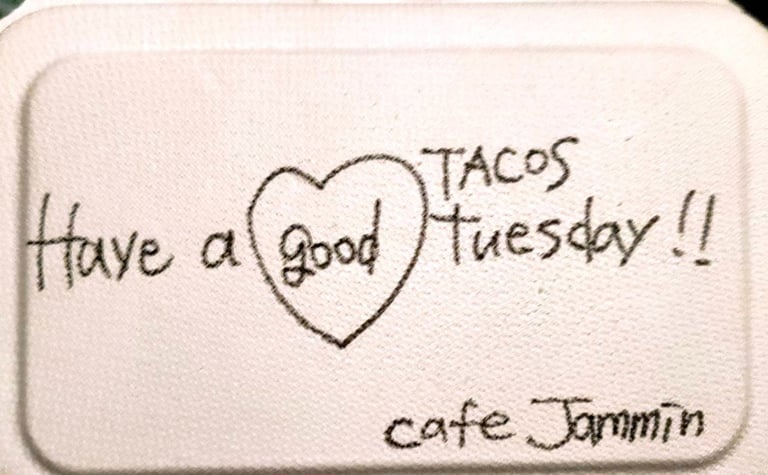 TACOS
Have a good tuesday!!
cafe Jammin